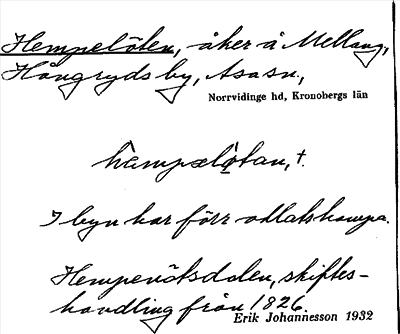 Hempelöten, åker å Mellang,
Hångryds by, Asa sn,
Norrvidinge hd, Kronobergs län
hempelötan, †.
I byn har förr odlats hampa.
Hempevötsdalen, skiftes-
handling från 1826.
Erik Johannesson 1932